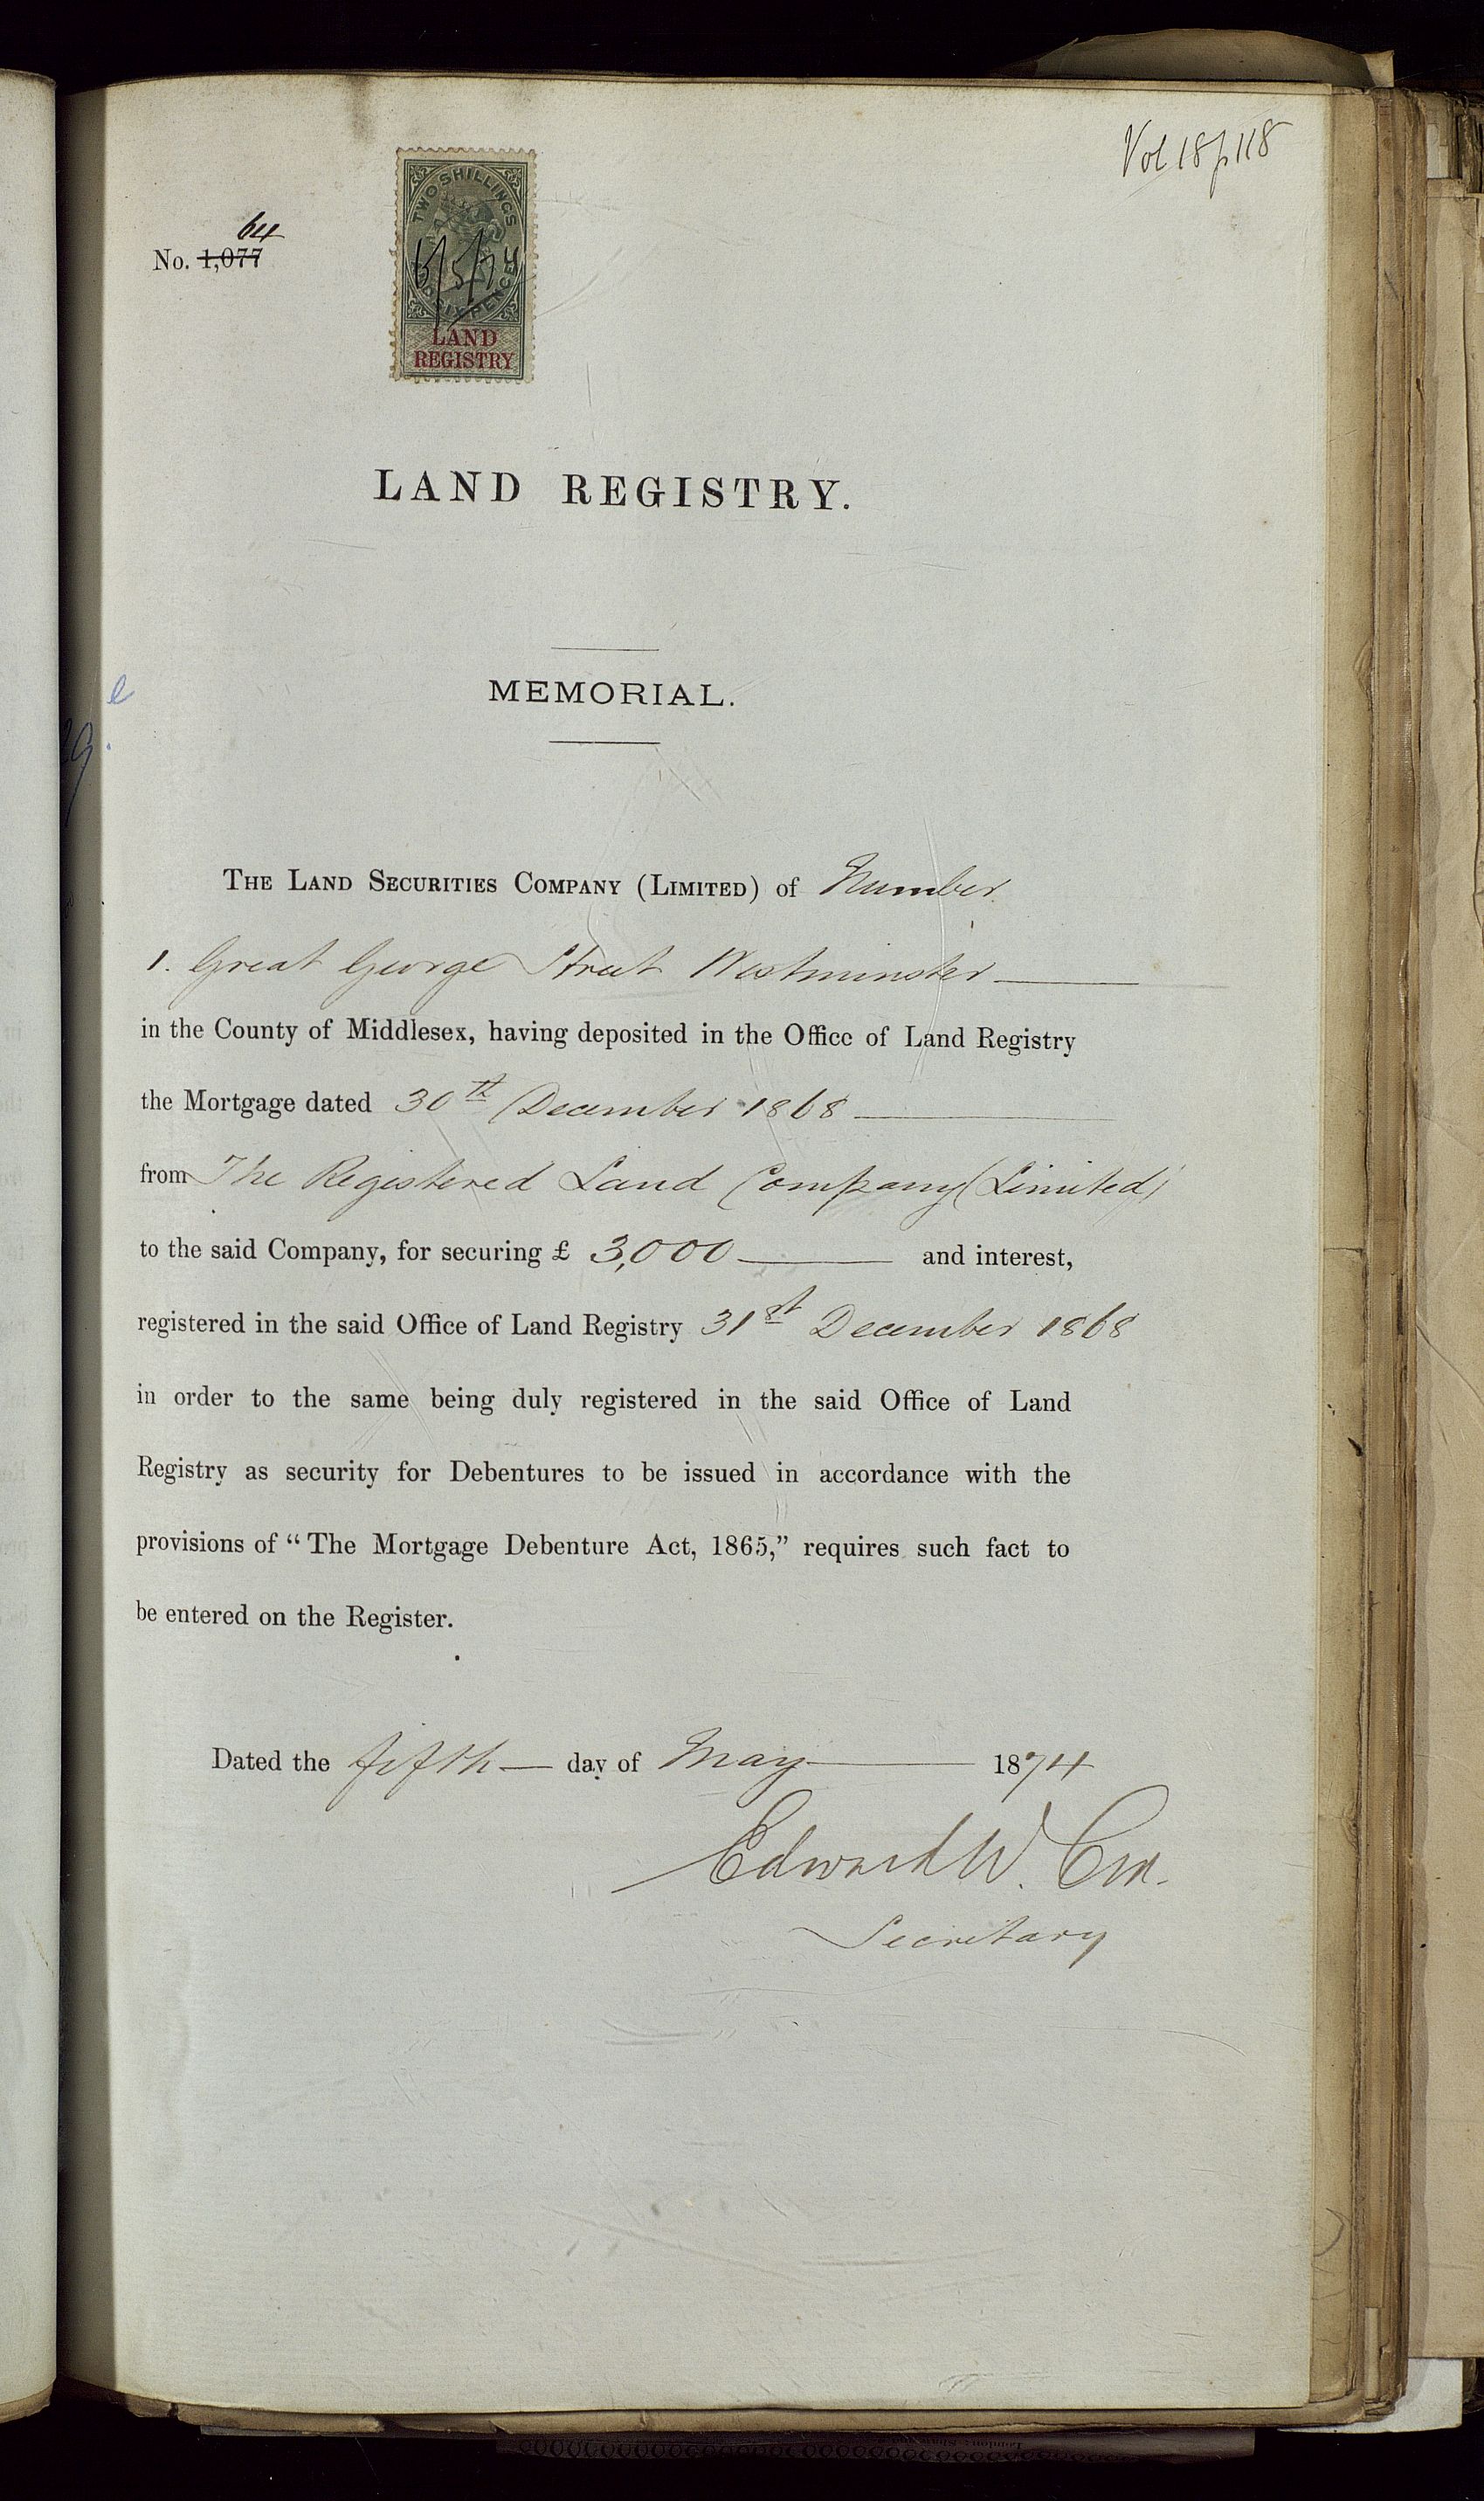 Vol 18 p 118
64
No. 1,077
TWO SHILLINGS
SIXPENCE
5/74
LAND
REGISTRY
LAND REGISTRY.
MEMORIAL.
THE LAND SECURITIES COMPANY (LIMITED) of Number
1. Great George Street Westminster
in the County of Middlesex, having deposited in the Office of Land Registry
the Mortgage dated 30th December 1868
from The Registered Land Company (Limited)
to the said Company, for securing £ 3,000 and interest,
registered in the said Office of Land Registry 31st December 1868
in order to the same being duly registered in the said Office of Land
Registry as security for Debentures to be issued in accordance with the
provisions of “The Mortgage Debenture Act, 1865,” requires such fact to
be entered on the Register.
Dated the fifth day of May 1874
Edward W.
Secretary